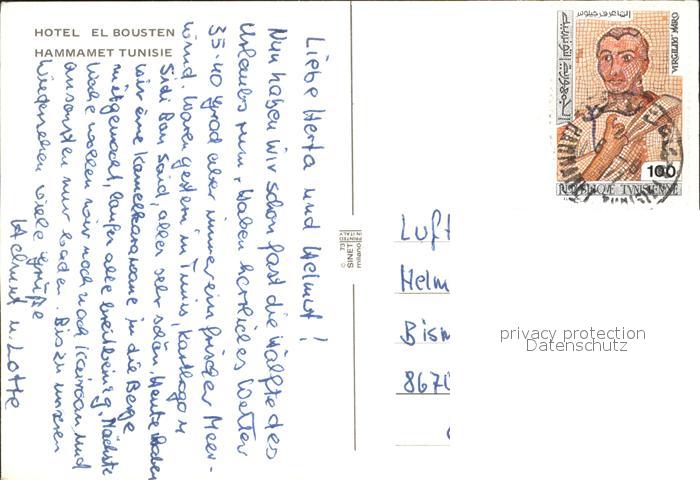 HOTEL EL BOUSTEN
HAMMAMET TUNISIE
Liebe Herta und Helmut!
Nun haben wir schon fast die Hälfte des
Urlaubs rum, haben herrliches Wetter
35-40 Grad aber immer ein frischer Meer-
wind. Waren gestern in Tunis, Karthago u
Sidi Bou Said, alles sehr schön. Heute haben
wir eine Kamelkarawane in die Berge
mitgemacht, laufen alle breitbeinig. Nächste
Woche wollen wir noch nach Kairouan und
ansonsten nur baden. Bis zu unserem
Wiedersehen viele Grüße
Helmut u. Lotte
c 731
SINET
milano
PRINTED
IN ITALY
VIRGILIO MARO
الجمهورية التونسية
100
REPUBLIQUE TUNISIENNE
Luft
Helm
Bism
8670
privacy protection
Datenschutz